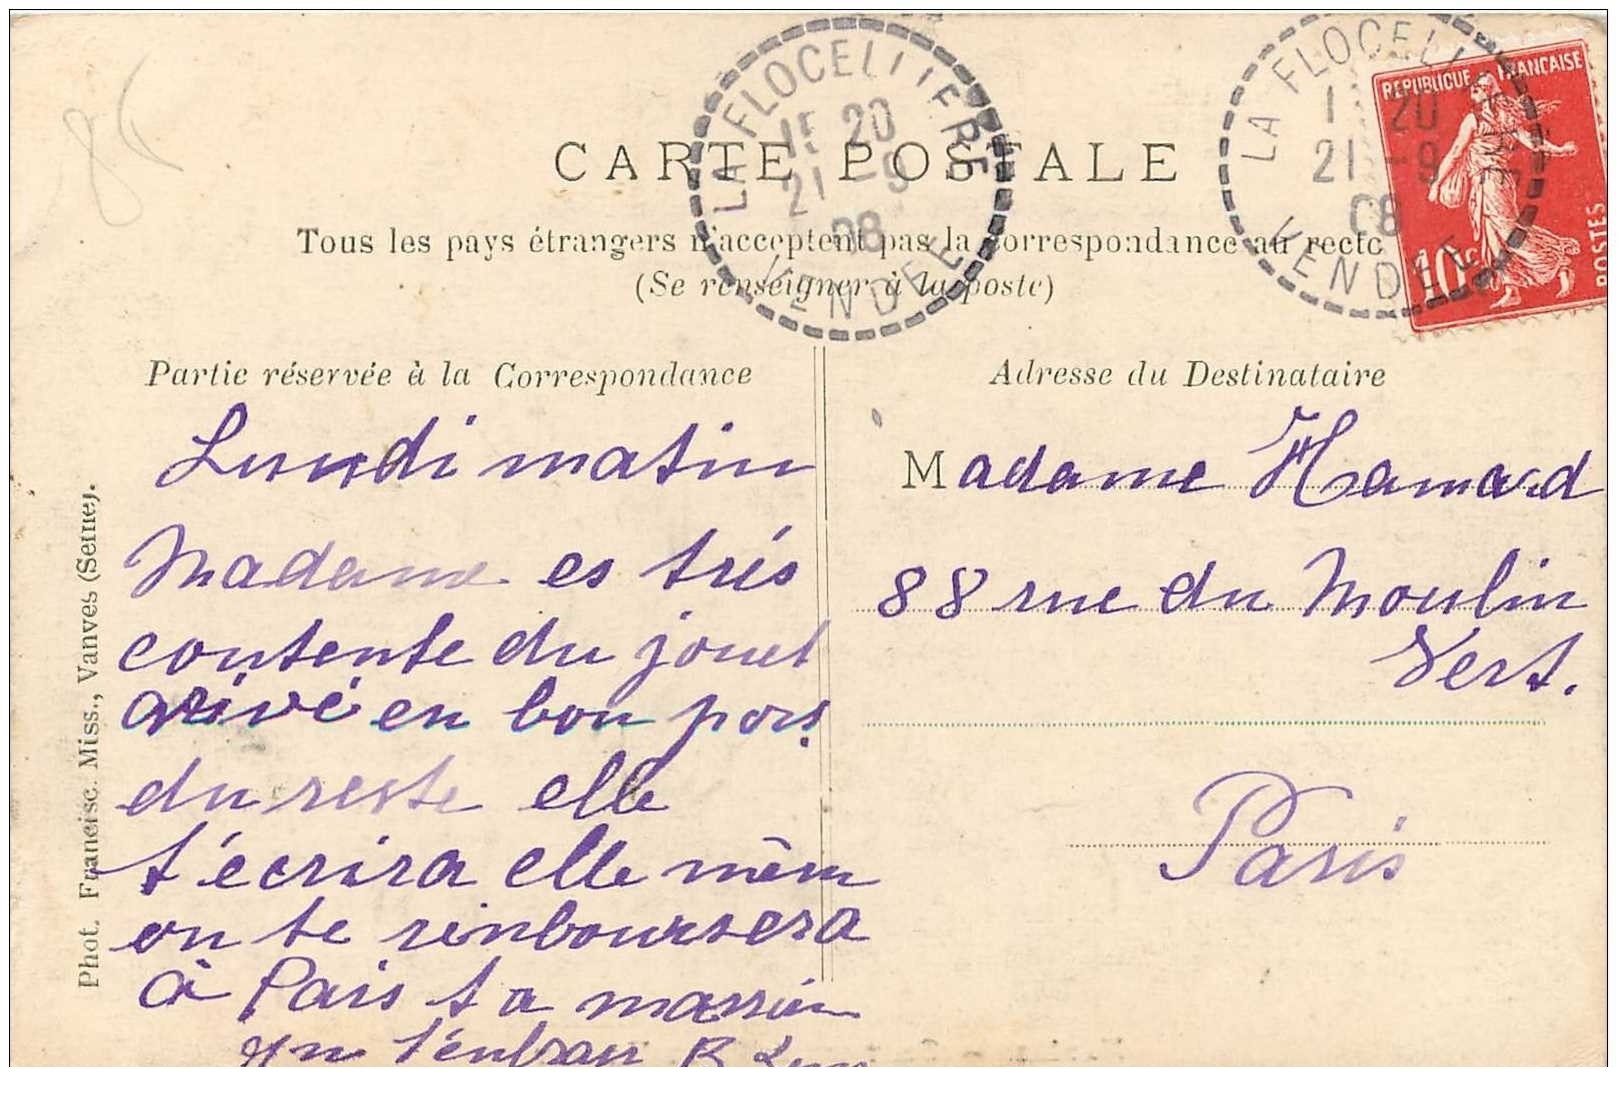 86
LA FLOCELLIERE
15 20
21 - 9
08
VENDEE
LA FLOCELLIERE
1 20
21 - 9
08
VENDEE
REPUBLIQUE FRANCAISE
10c
POSTES
CARTE POSTALE
Tous les pays étrangers n'acceptent pas la correspondance au recto
(Se renseigner à la poste)
Partie réservée à la Correspondance
Adresse du Destinataire
Lundi matin
Madame es trés
contente du jouet
arivé en bon pors
du reste elle
t'écrira elle mêm
on te rinboursera
à Pais ta
qun t'enbran
Madame Hamard
88 rue du Moulin
Vert.
Paris
Phot. Francisc. Miss., Vanves (Seine).